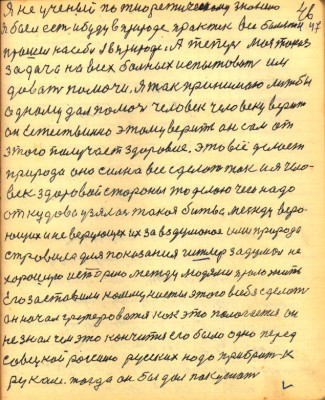 Я не ученый по тиоретическому знанию 46
я был есть и буду в природе практик все болезни 47
на себе я в природе. А теперь моя такая
задача на всех болных испытовать им
довать помочи. Я так принимаю любы
одному дал помоч человек человеку верит
он естествинно этому верит он сам от
этого получает здоровие. Это всё делает
природа оно силна все сделать так и я чело-
век здоровой стороны то дело чево надо
откудова узялас такая битва между веро-
ющих и не верующех их за вздуманое или природа
стровила для показания гитлер задумал не
хорошую историю между людями
Его заставили комунисти этого в себе сделать
он начал групероватя как это пологается он
не знал чем это кончится его было одно перед
совецкой россию русских надо прибрать к
рукам. тогда он был дал покушат